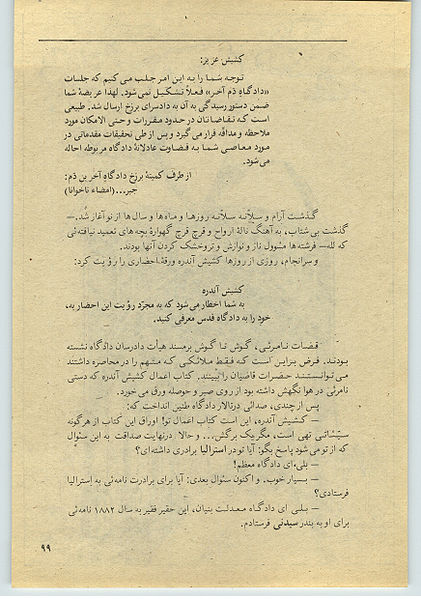 کشیش عزیز:
توجه شما را به این امر جلب می کنیم که جلسات
«دادگاهِ دَم آخر» فعلاً تشکیل نمی شود. لهذا عریضهٔ شما
ضمن دستور رسیدگی به آن به دادسرای برزخ ارسال شد. طبیعی
است که تقاضاتان در حدود مقررات و حتی الامکان مورد
ملاحظه و مداقّه قرار می گیرد و پس از طی تحقیقات مقدماتی در
مورد معاصی شما به قضاوت عادلانهٔ دادگاه مربوطه احاله
می شود.
از طرف کمیتهٔ برزخ دادگاه آخرین دَم:
جبر...(امضاء ناخوانا)
گذشت آرام و سلاّنه سلاّنه روزها و ماه ها و سال ها از نو آغاز شد.—
گذشت بی شتاب، به آهنگ نالهٔ ارواح و قرچ قرچ گهوارهٔ بچه های تعمید نیافته ئی
که لله— فرشته ها مشوول ناز و نوازش و تروخشک کردن آنها بودند.
و سرانجام، روزی از روزها کشیش آندره ورقهٔ احضاری را رؤیت کرد:
کشیش آندره
به شما اخطار می شود که به مجرّد رؤیت این احضاریه،
خود را به دادگاه قدس معرفی کنید.
قضات نامرئی، گوش تا گوش برمسند هیأت دادرسان دادگاه نشسته
بودند. فرض براین است که فقط ملائکی که متهم را در محاصره داشتند
می توانستند حضرات قاضیان را ببینند. کتاب اعمال کشیش آندره که دستی
نامرئی در هوا نگهش داشته بود از روی صبر و حوصله ورق می خورد.
پس از چندی، صدائی درتالار دادگاه طنین انداخت که:
— کشیش آندره، این است کتاب اعمال تو! اوراق این کتاب از هرگونه
سیّئاتی تهی است، مگر یک برگش... و حالا درنهایت صداقت به این سئوال
که از تو می شود پاسخ بگو: آیا تو در استرالیا برادری داشته ای؟
— بلی ای دادگاه معظم!
— بسیار خوب. و اکنون سئوال بعدی: آیا برای برادرت نامه ئی به استرالیا
فرستادی؟
— بلی ای دادگاه معدلت بنیان، این حقیر فقیر به سال ۱۸۸۲ نامه ئی
برای او به بندر سیدنی فرستادم.
۹۹